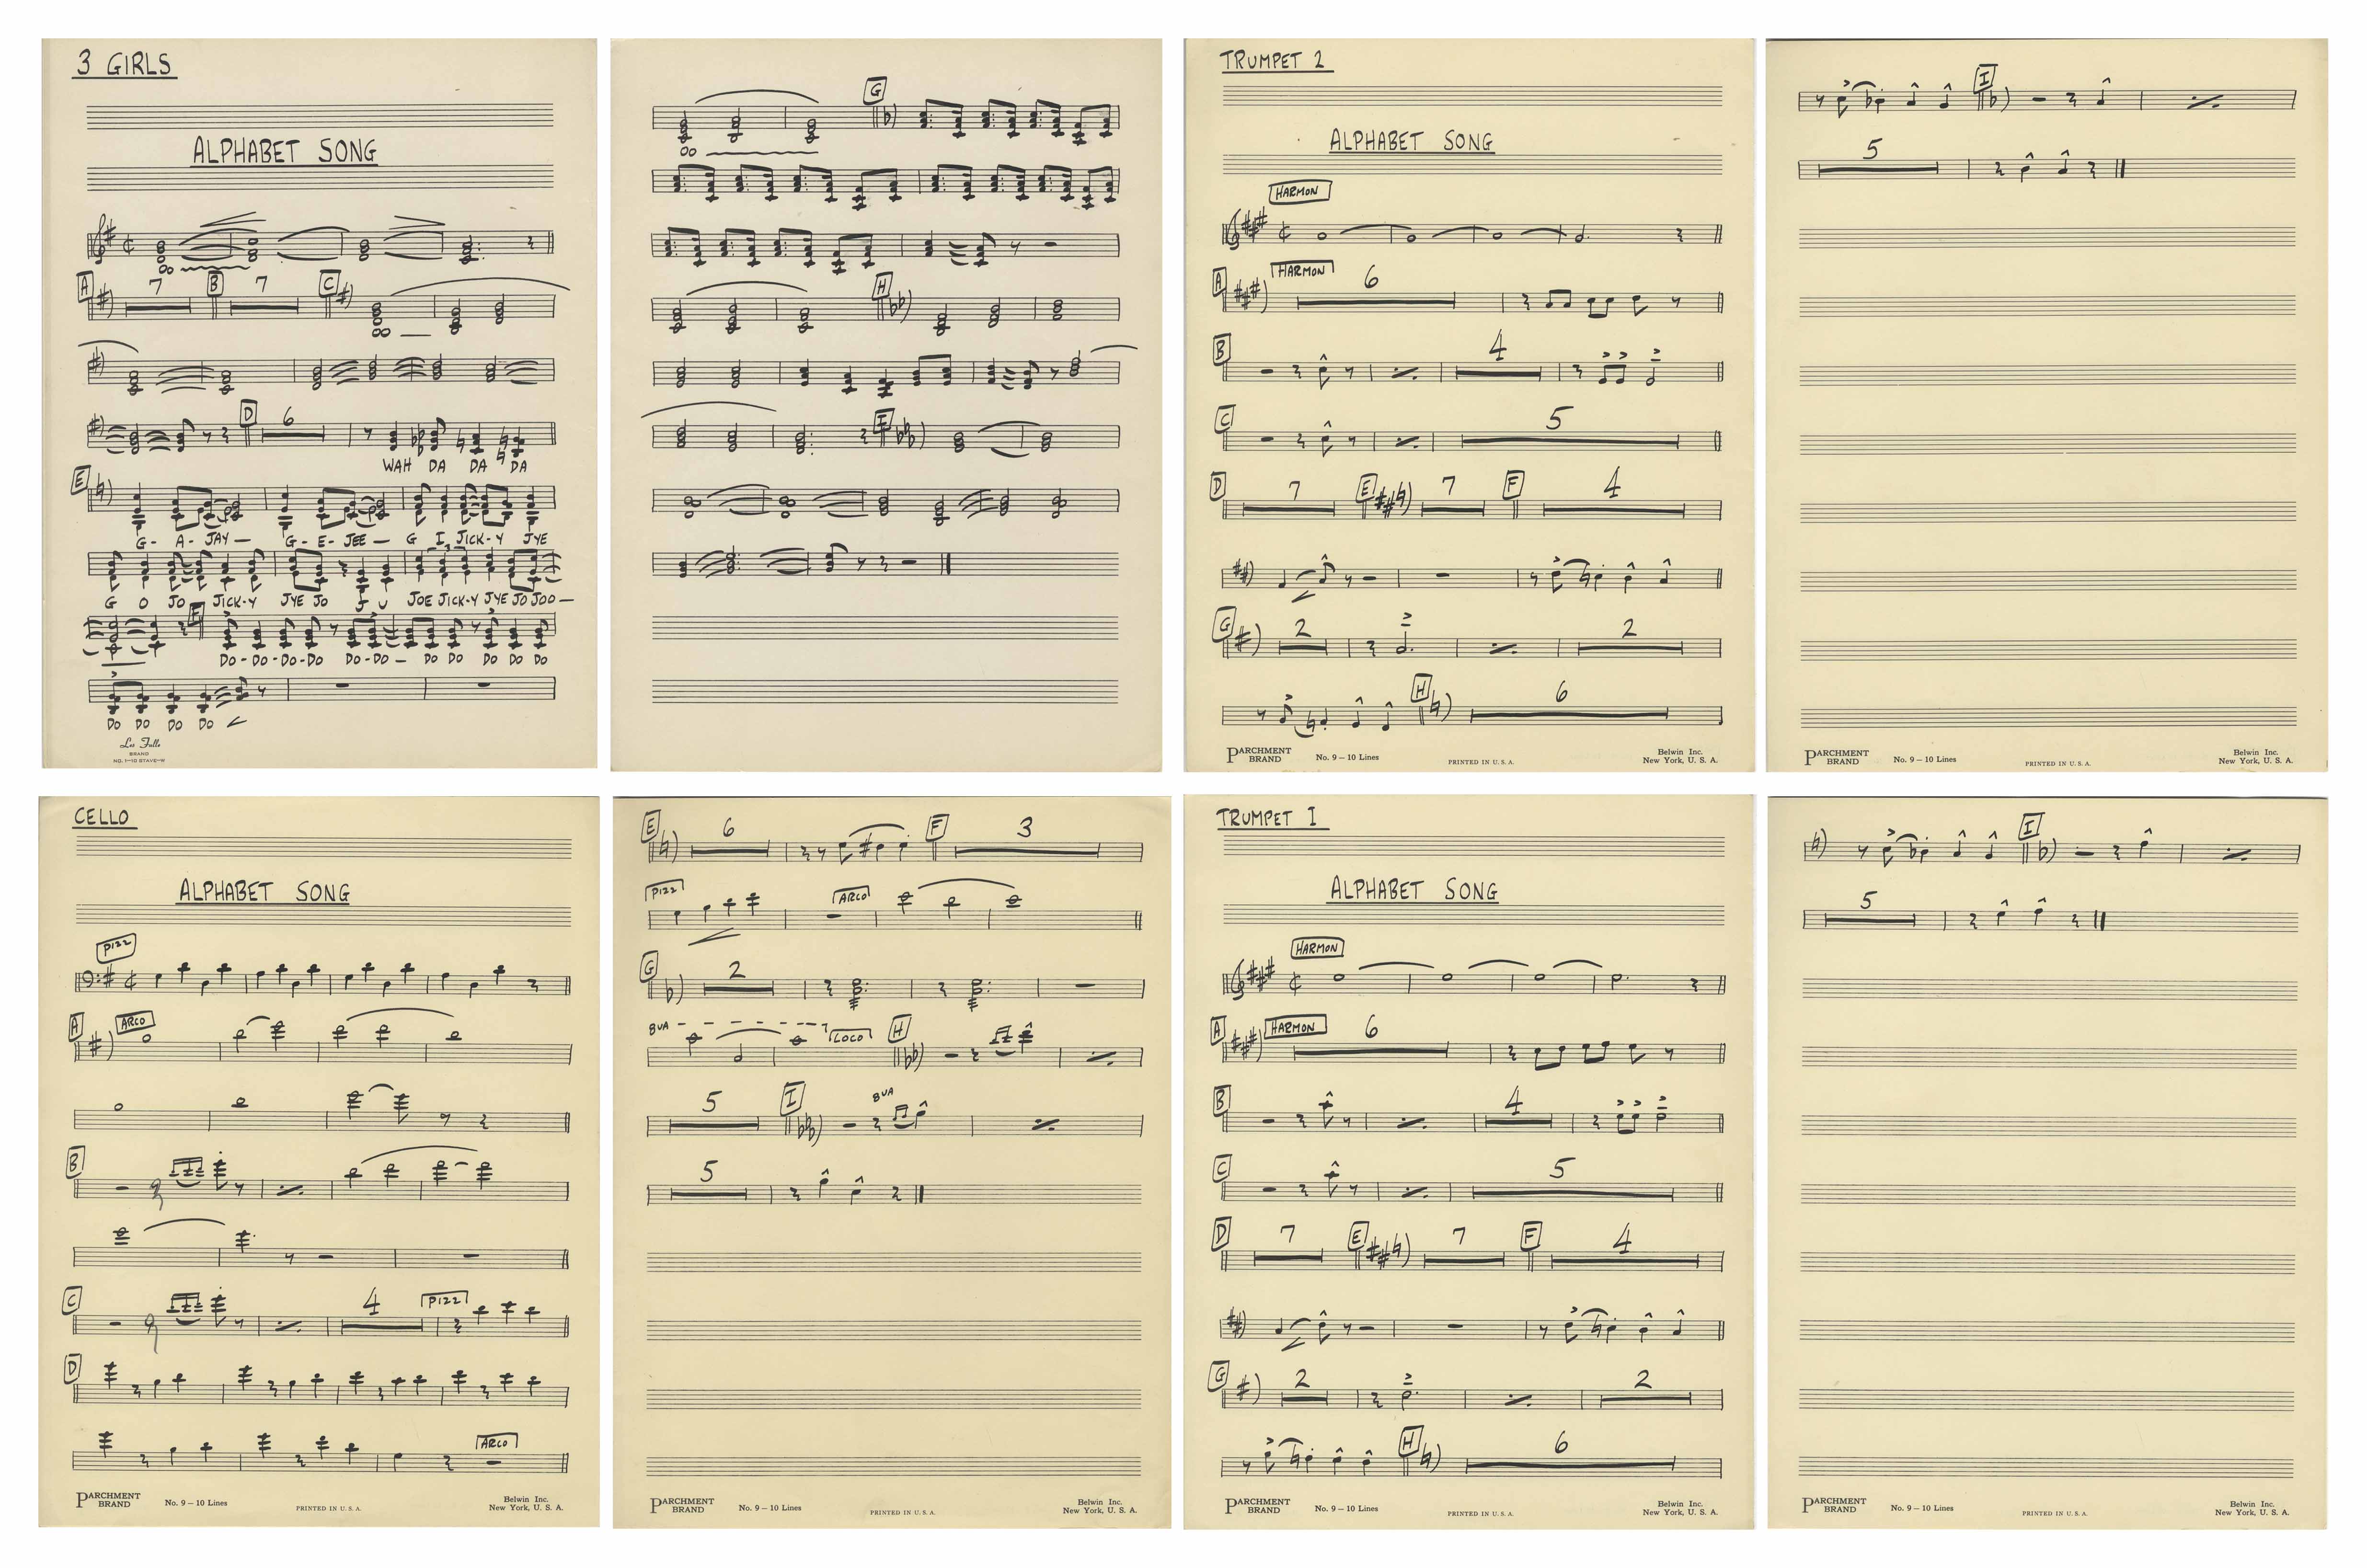 3 GIRLS
ALPHABET SONG
OO
A 7 B 7 C
OO
D 6
WAH DA DA DA
E
G - A - JAY — G - E - JEE — G I JICK-Y JYE
G O JO JICK-Y JYE JO J U JOE JICK-Y JYE JO JOO —
F
DO - DO - DO - DO DO - DO — DO DO DO DO DO
DO DO DO DO
Les Falle
BRAND
NO. 1—10 STAVE—W
G
OO
H
I
TRUMPET 2
ALPHABET SONG
HARMON
A HARMON 6
B 4
C 5
D 7 E 7 F 4
G 2 2
H 6
PARCHMENT BRAND No. 9 — 10 Lines PRINTED IN U. S. A. Belwin Inc. New York, U. S. A.
I
5
PARCHMENT BRAND No. 9 — 10 Lines PRINTED IN U. S. A. Belwin Inc. New York, U. S. A.
CELLO
ALPHABET SONG
PIZZ
A ARCO
B
C 4 PIZZ
D
ARCO
PARCHMENT BRAND No. 9 — 10 Lines PRINTED IN U. S. A. Belwin Inc. New York, U. S. A.
E 6 F 3
PIZZ ARCO
G 2
8VA LOCO H
5 I 8VA
5
PARCHMENT BRAND No. 9 — 10 Lines PRINTED IN U. S. A. Belwin Inc. New York, U. S. A.
TRUMPET I
ALPHABET SONG
HARMON
A HARMON 6
B 4
C 5
D 7 E 7 F 4
G 2 2
H 6
PARCHMENT BRAND No. 9 — 10 Lines PRINTED IN U. S. A. Belwin Inc. New York, U. S. A.
I
5
PARCHMENT BRAND No. 9 — 10 Lines PRINTED IN U. S. A. Belwin Inc. New York, U. S. A.